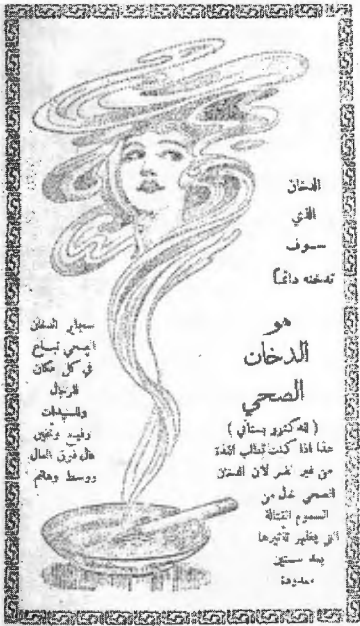 الدخان
الذي
سوف
تدخنه دائماً
هو
الدخان
الصحي
هذا اذا كنت تطلب اللذة
من غير ضرر لان الدخان
الصحي خال من
السموم القتالة
التي يظهر تأثيرها
بعد سنين
معدودة
سجاير الدخان
الصحي تباع
في كل مكان
للرجال
وللسيدات
فوق العال
ووسط